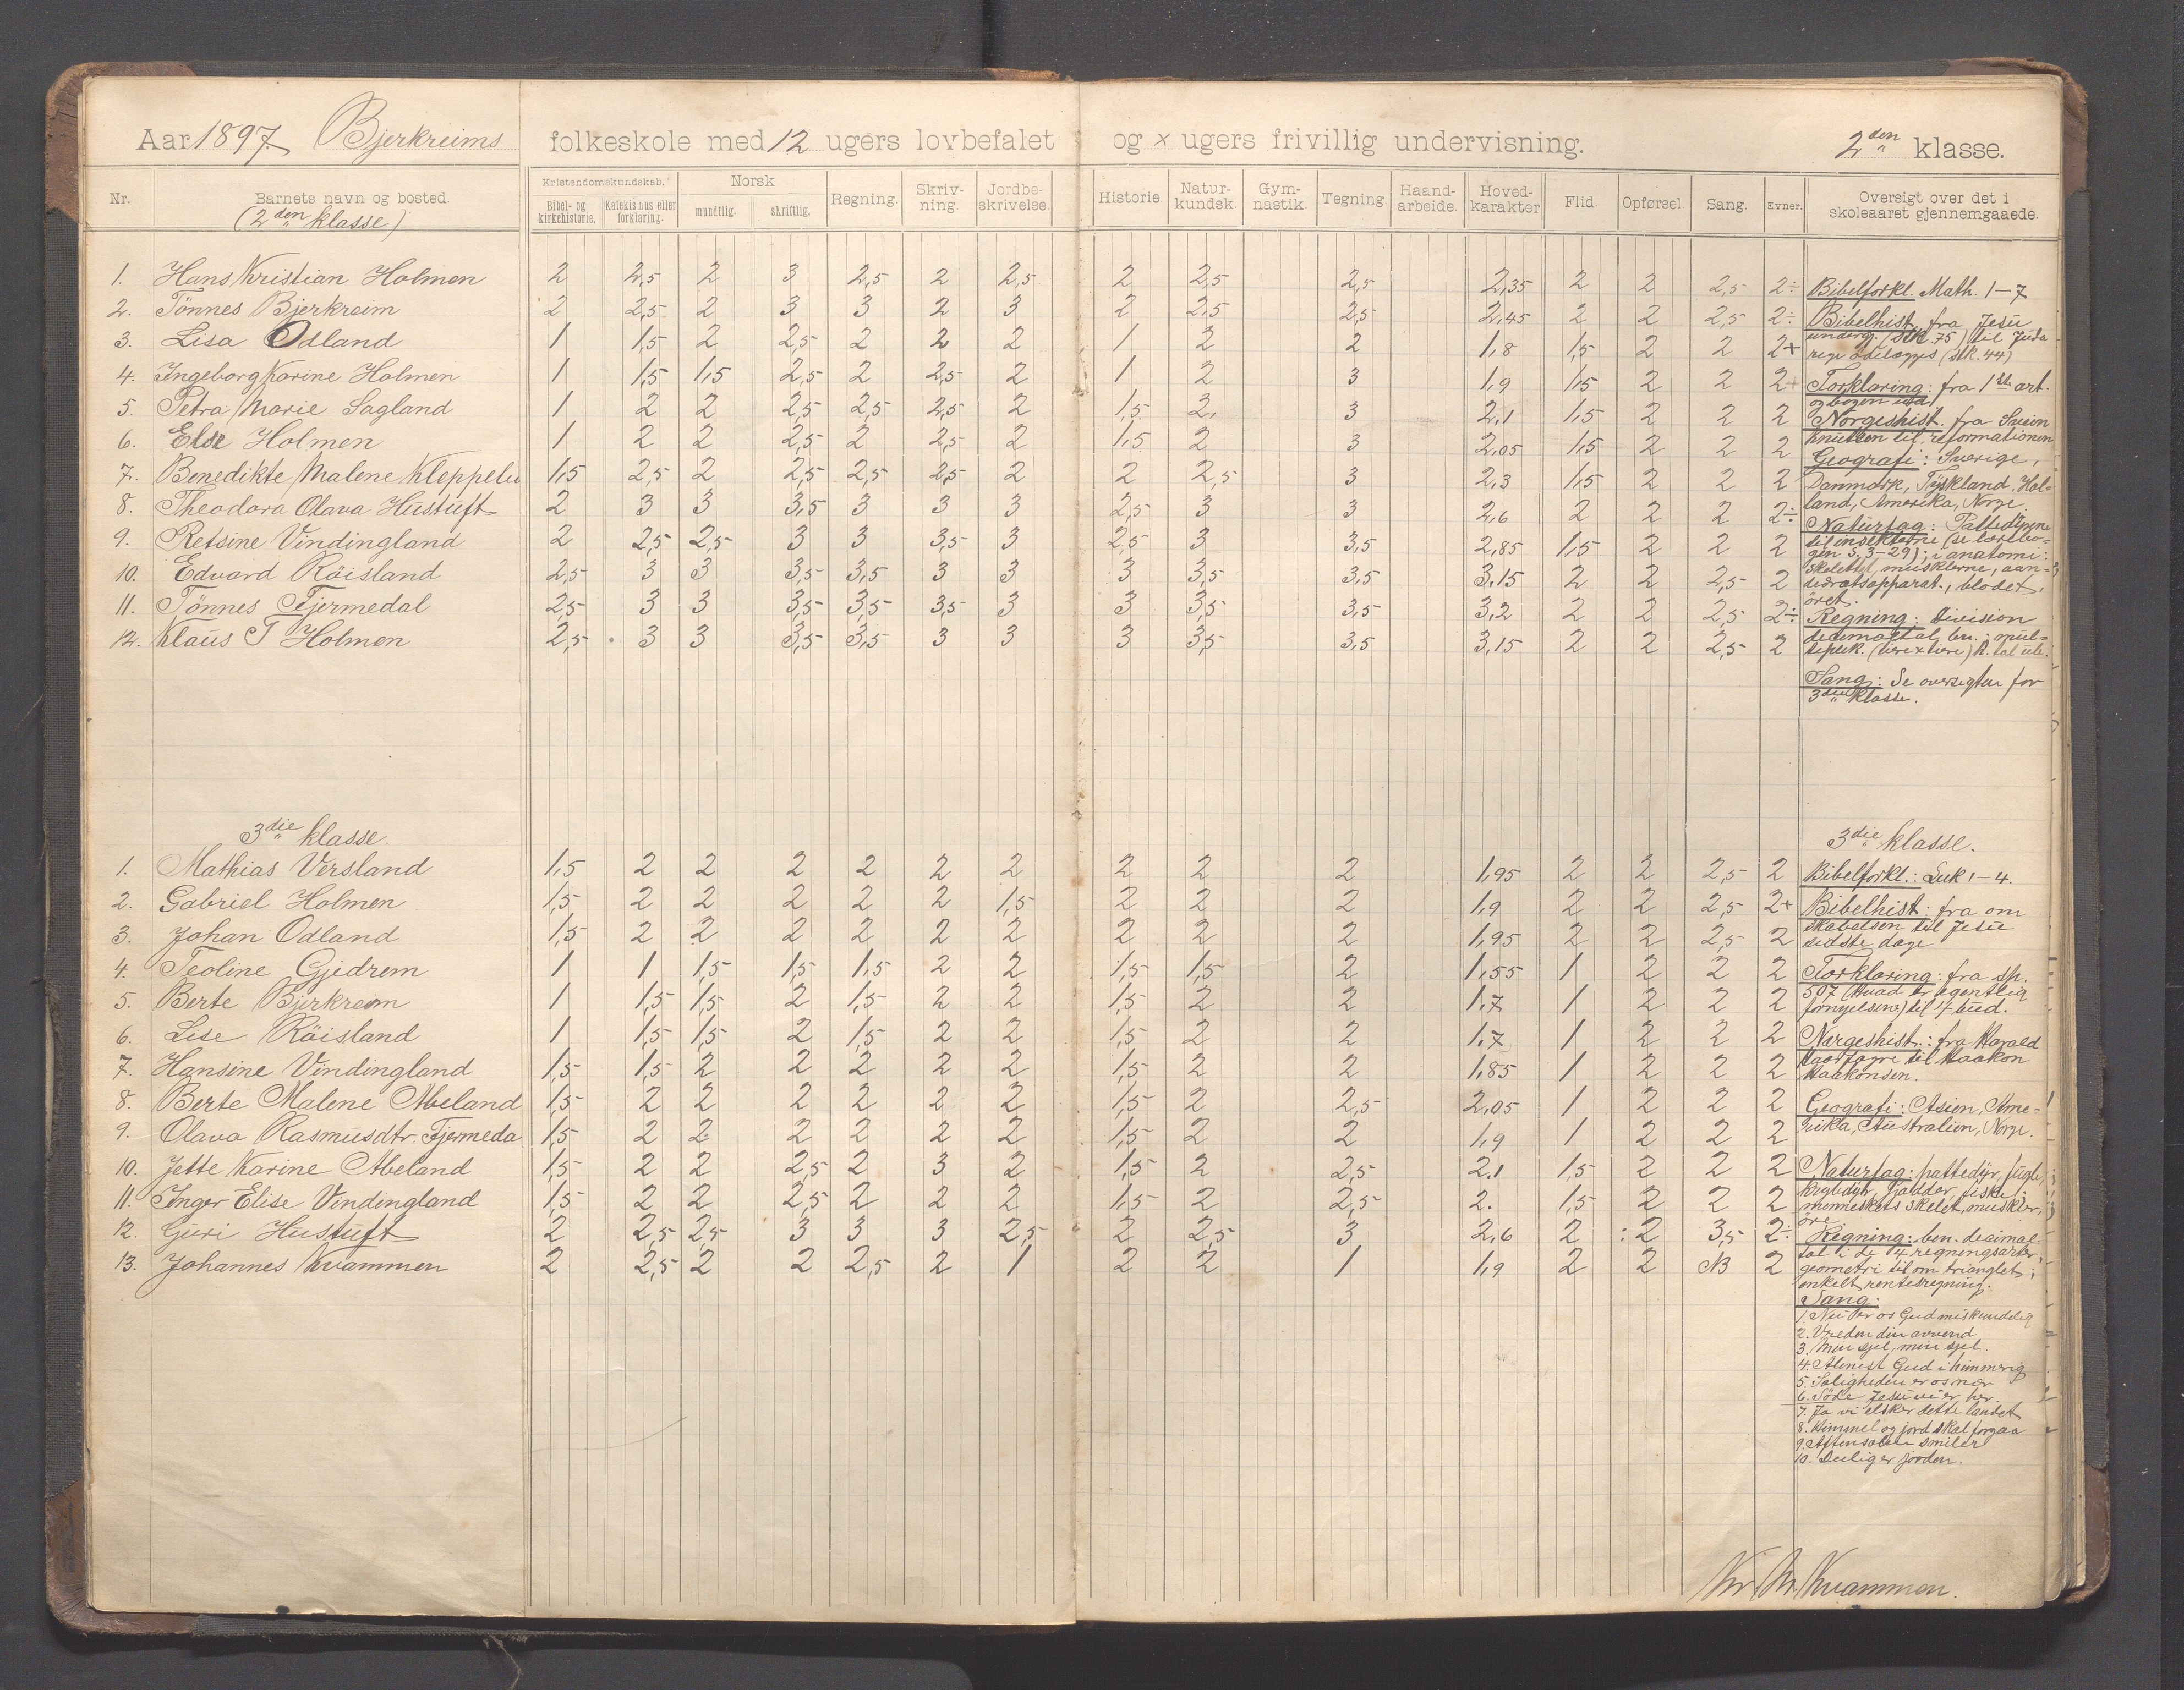 Aar 1897. Bjerkreims folkeskole med 12 ugers lovbefalet og x ugers frivillig undervisning. 2den klasse.
Nr. Barnets navn og bosted. Kristendomskundskab. Bibel- og kirkehistorie. Katekismus eller forklaring. Norsk mundtlig. skriftlig. Regning. Skrivning. Jordbeskrivelse. Historie. Naturkundsk. Gymnastik. Tegning Haandarbeide. Hovedkarakter Flid. Opførsel. Sang. Evner. Oversigt over det i skoleaaret gjennemgaaede.
(2den klasse)
1. Hans Kristian Holmen 2 2,5 2 3 2,5 2 2,5 2 2,5 2,5 2,35 2 2 2,5 2÷
2. Tönnes Bjerkreim 2 2,5 2 3 3 2 3 2 2,5 2,5 2,45 2 2 2,5 2÷
3. Lisa Odland 1 1,5 2 2,5 2 2 2 1 2 2 1,8 1,5 2 2 2+
4. Ingeborg Karine Holmen 1 1,5 1,5 2,5 2 2,5 2 1 2 3 1,9 1,5 2 2 2+
5. Petra Marie Sagland 1 2 2 2,5 2,5 2,5 2 1,5 2 3 2,1 1,5 2 2 2
6. Else Holmen 1 2 2 2,5 2 2,5 2 1,5 2 3 2,05 1,5 2 2 2
7. Benedikte Malene Kleppelu 1,5 2,5 2 2,5 2,5 2,5 2 2 2,5 3 2,3 1,5 2 2 2
8. Theodora Olava Hustuft 2 3 3 3,5 3 3 3 2,5 3 3 2,6 2 2 2 2÷
9. Retsine Vindingland 2 2,5 2,5 3 3 3,5 3 2,5 3 3,5 2,85 1,5 2 2 2
10. Edvard Röisland 2,5 3 3 3,5 3,5 3 3 3 3,5 3,5 3,15 2 2 2,5 2
11. Tönnes Tjermedal 2,5 3 3 3,5 3,5 3,5 3 3 3,5 3,5 3,2 2 2 2,5 2÷
12. Klaus T Holmen 2,5 3 3 3,5 3,5 3 3 3 3,5 3,5 3,15 2 2 2,5 2
Bibelforkl. Math. 1-7
Bibelhist. fra Jesu
underg. (stk. 75) til Juda
rige ödelægges (stk. 44)
Forklaring: fra 1ste art.
og bogen ud.
Norgeshist. fra Svein
Knutsen til reformationen
Geografi: Sverige,
Danmark, Tyskland, Hol-
land, Amerika, Norge.
Naturfag: Pattedyrene
til insekterne (se læsebo-
gen s. 3-29); i anatomi:
Skelettet, musklerne, aan-
dedrætsapparat., blodet,
öret.
Regning: Division
decimaltal, ben.; mul-
tiplik. (tiere x tiere) h. tal
Sang: Se oversigten for
3die klasse.
3die klasse. 3die klasse.
1. Mathias Versland 1,5 2 2 2 2 2 2 2 2 2 1,95 2 2 2,5 2
2. Gabriel Holmen 1,5 2 2 2 2 2 1,5 2 2 2 1,9 2 2 2,5 2+
3. Johan Odland 1,5 2 2 2 2 2 2 2 2 2 1,95 2 2 2,5 2
4. Teoline Gjedrem 1 1 1,5 1,5 1,5 2 2 1,5 1,5 2 1,55 1 2 2 2
5. Berte Bjerkreim 1 1,5 1,5 2 1,5 2 2 1,5 2 2 1,7 1 2 2 2
6. Lise Röisland 1 1,5 1,5 2 1,5 2 2 1,5 2 2 1,7 1 2 2 2
7. Hansine Vindingland 1,5 1,5 2 2 2 2 2 1,5 2 2 1,85 1 2 2 2
8. Berte Malene Abeland 1,5 2 2 2 2 2 2 1,5 2 2,5 2,05 1 2 2 2
9. Olava Rasmusdtr. Tjermeda 1,5 2 2 2 2 2 2 1,5 2 2 1,9 1 2 2 2
10. Jette Karine Abeland 1,5 2 2 2,5 2 3 2 1,5 2 2,5 2.1 1,5 2 2 2
11. Inger Elise Vindingland 1,5 2 2 2,5 2 2 2 1,5 2 2,5 2. 1,5 2 2 2
12. Guri Hustuft 2 2,5 2,5 3 3 3 2,5 2 2,5 3 2,6 2 2 3,5 2÷
13. Johannes Kvammen 2 2,5 2 2 2,5 2 1 2 2 1 1,9 2 2 NB 2
Bibelforkl.: Luk 1-4.
Bibelhist: fra om
skabelsen til Jesu
sidste dage
Forklaring: fra sp.
507 (Hvad er egentlig
fornyelsen?) til 4 bud.
Norgeshist.: fra Harald
Haarfagre til Haakon
Haakonsen.
Geografi: Asien, Ame-
rika, Australien, Norge.
Naturfag: pattedyr, fugle,
krybdyr, padder, fiske;
menneskets skelet, muskler,
öre
Regning: ben. decimal-
tal i de 4 regningsarter,
geometri til om trianglet;
enkelt rentesregning.
Sang:
1. Nu er os Gud miskundelig
2. Vreden din avvend
3. Min sjel, min sjel.
4. Alenest Gud i himmerig
5. Saligheden er os nær
6. Söde Jesu vi er her.
7. Ja vi elsker dette landet
8. Himmel og jord skal forgaa
9. Aftensolen smiler
10. Deilig er jorden.
Kr. Kr. Kvammen.